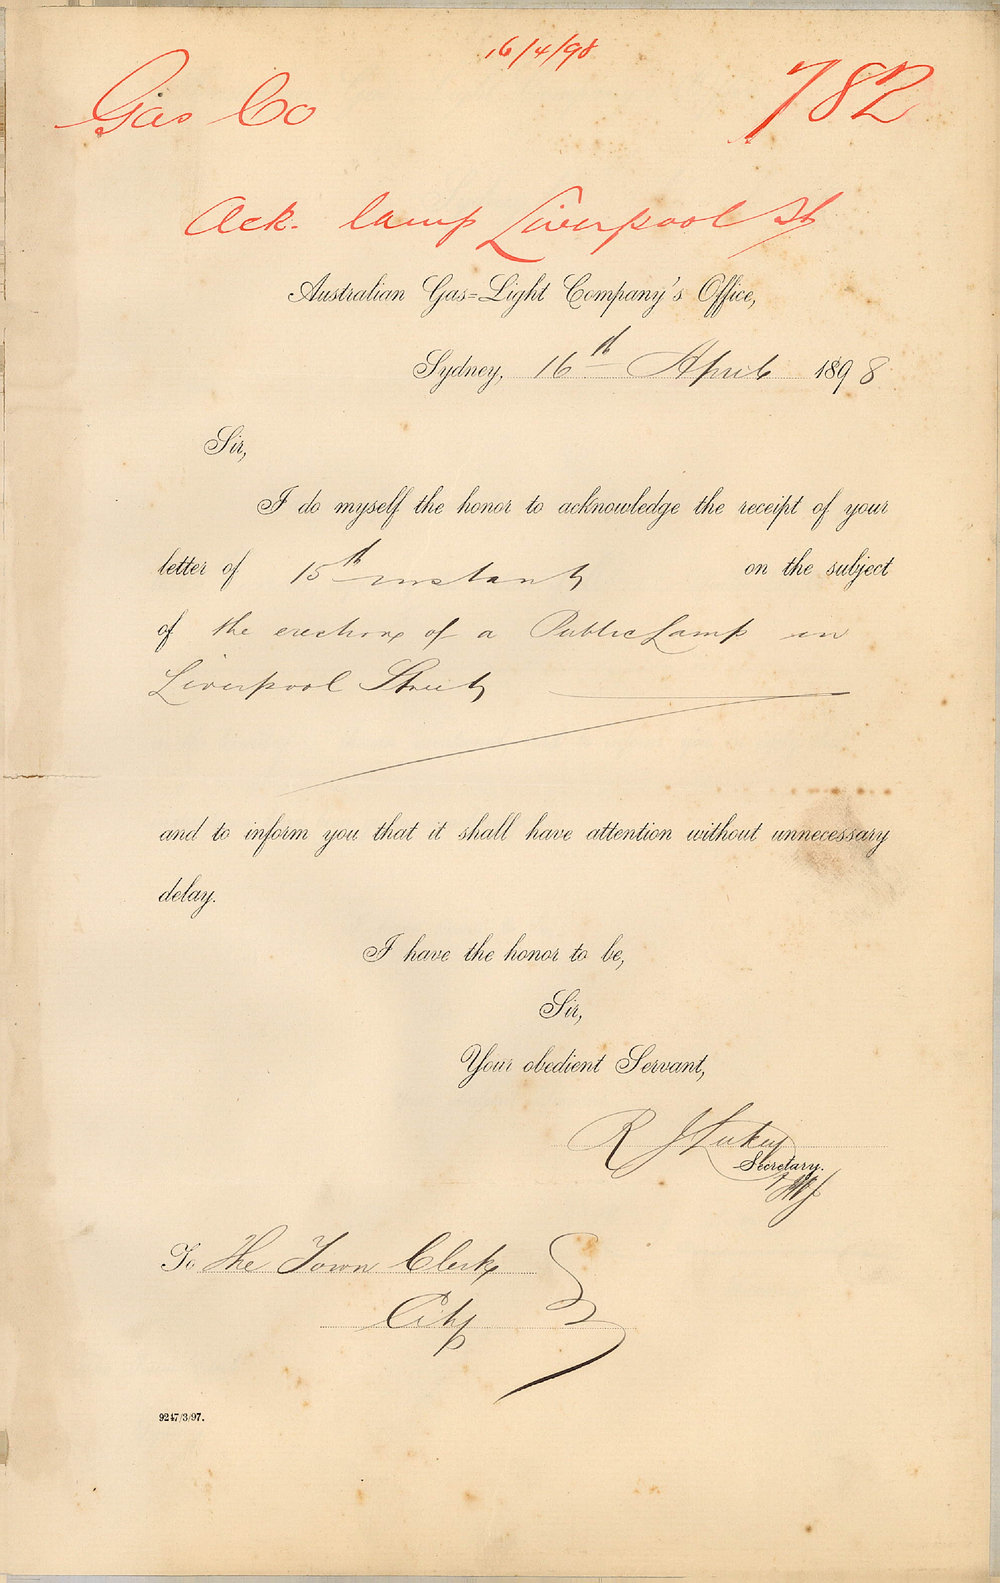 16/4/98
Gas Co
782
Ack. lamp Liverpool St
Australian Gas=Light Company's Office,
Sydney, 16th April 1898
Sir,
I do myself the honor to acknowledge the receipt of your
letter of 15th instant on the subject
of the erection of a Public Lamp in
Liverpool Street
and to inform you that it shall have attention without unnecessary
delay.
I have the honor to be,
Sir,
Your obedient Servant,
R J Lukey
Secretary.
To The Town Clerk
City
9247/3/97.